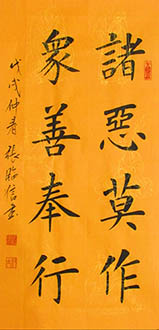 諸惡莫作
衆善奉行
戊戌仲春張臨信書